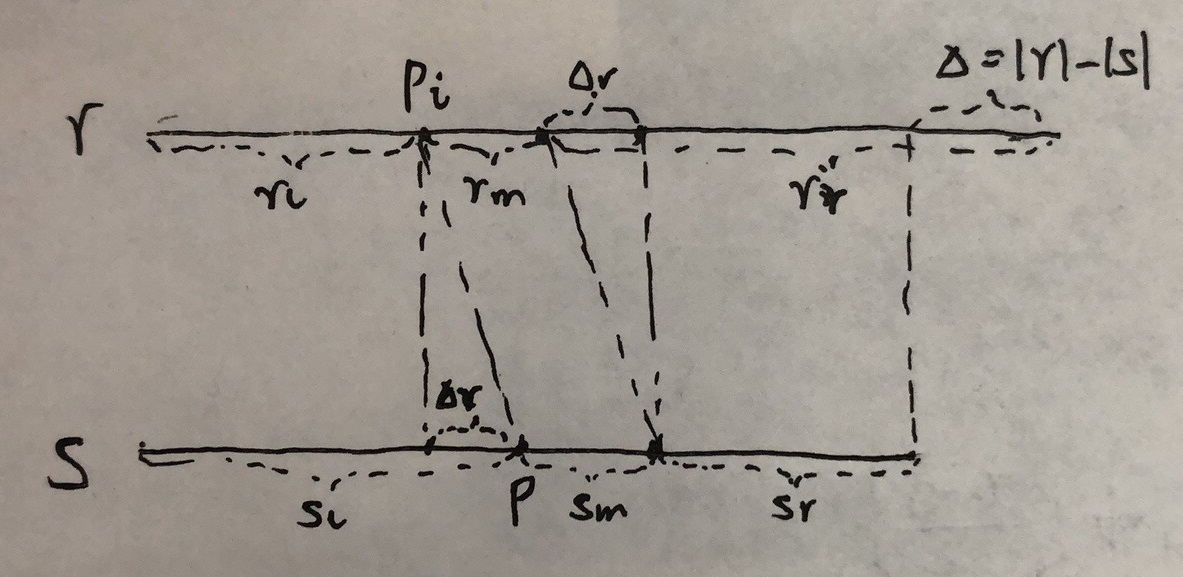 Δ = |r| - |s|
Pi Δr
r
ri rm rr
Δr
S
si P sm sr